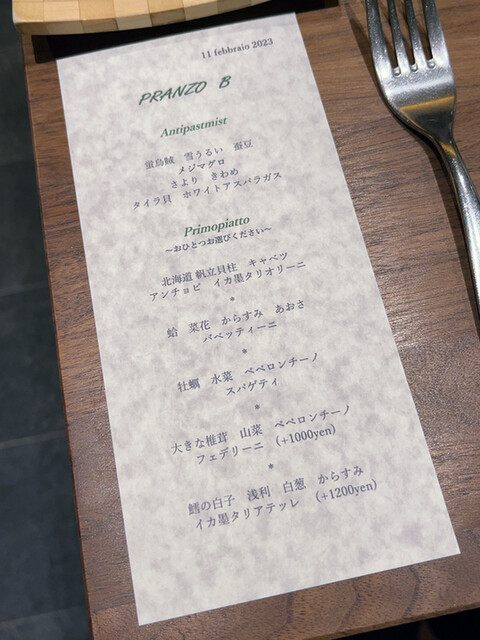 11 febbraio 2023
PRANZO B
Antipastmist
蛍烏賊 雪うるい 蚕豆
メジマグロ
さより きわめ
タイラ貝 ホワイトアスパラガス
Primopiatto
～おひとつお選びください～
北海道 帆立貝柱 キャベツ
アンチョビ イカ墨タリオリーニ
*
蛤 菜花 からすみ あおさ
バベッティーニ
*
牡蠣 水菜 ペペロンチーノ
スパゲティ
*
大きな椎茸 山菜 ペペロンチーノ
フェデリーニ (+1000yen)
*
鱈の白子 浅利 白葱 からすみ
イカ墨タリアテッレ (+1200yen)